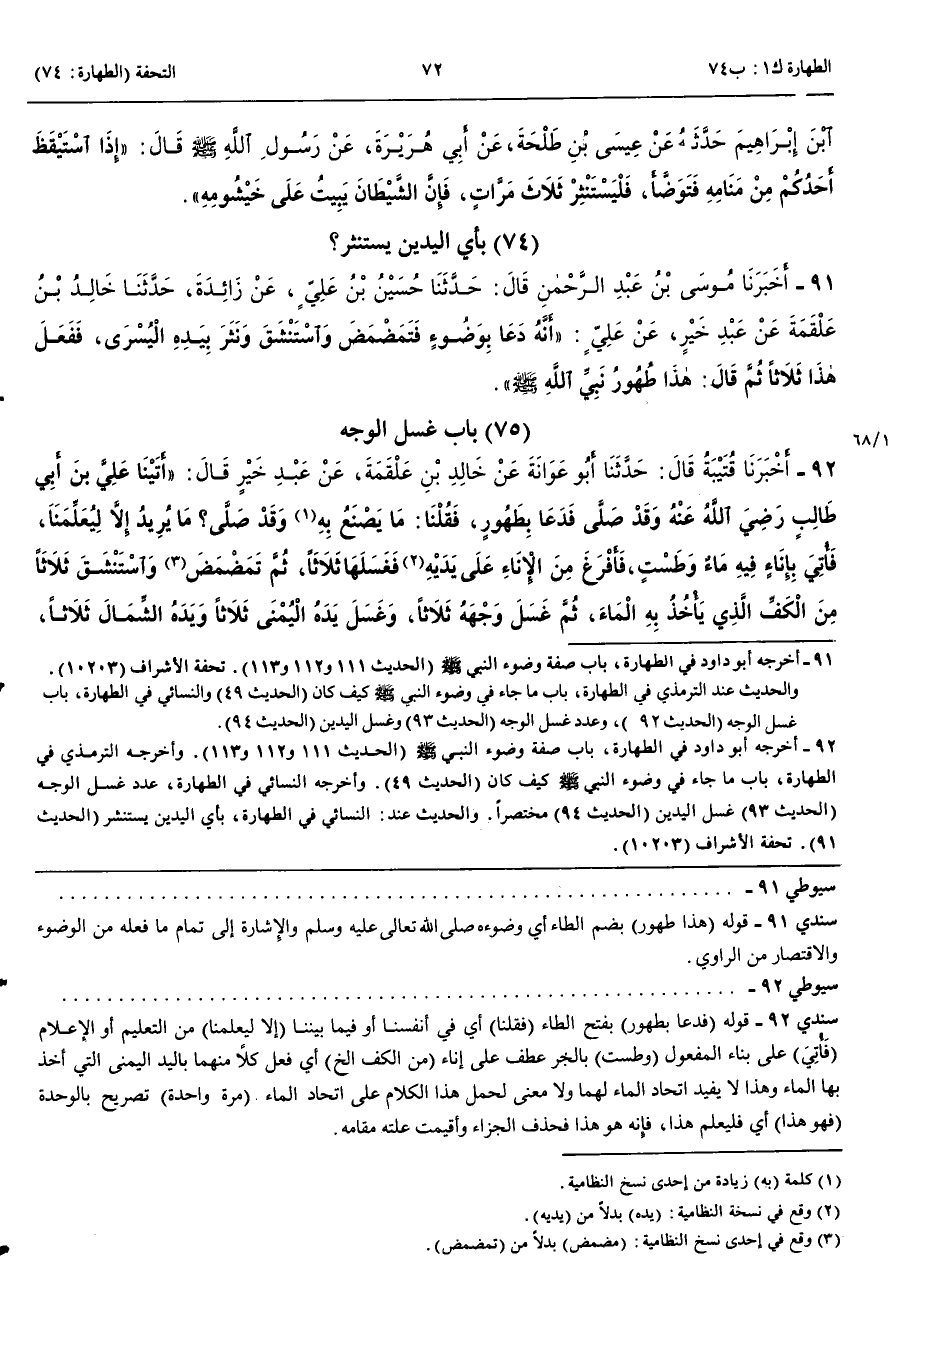 الطهارة ك١: ب٧٤ ٧٢ التحفة (الطهارة: ٧٤)
ٱبْنَ إِبْرَاهِيمَ حَدَّثَهُ عَنْ عِيسَى بْنِ طَلْحَةَ، عَنْ أَبِي هُرَيْرَةَ، عَنْ رَسُولِ ٱللَّهِ ﷺ قَالَ: «إِذَا ٱسْتَيْقَظَ
أَحَدُكُمْ مِنْ مَنَامِهِ فَتَوَضَّأَ، فَلْيَسْتَنْثِرْ ثَلَاثَ مَرَّاتٍ، فَإِنَّ الشَّيْطَانَ يَبِيتُ عَلَى خَيْشُومِهِ».
(٧٤) بأي اليدين يستنثر؟
٩١ ـ أَخْبَرَنَا مُوسَى بْنُ عَبْدِ الرَّحْمٰنِ قَالَ: حَدَّثَنَا حُسَيْنُ بْنُ عَلِيٍّ، عَنْ زَائِدَةَ، حَدَّثَنَا خَالِدُ بْنُ
عَلْقَمَةَ عَنْ عَبْدِ خَيْرٍ، عَنْ عَلِيٍّ: «أَنَّهُ دَعَا بِوَضُوءٍ فَتَمَضْمَضَ وَٱسْتَنْشَقَ وَنَثَرَ بِيَدِهِ الْيُسْرَى، فَفَعَلَ
هٰذَا ثَلَاثاً ثُمَّ قَالَ: هٰذَا طُهُورُ نَبِيِّ ٱللَّهِ ﷺ».
(٧٥) باب غسل الوجه
٦٨/١
٩٢ ـ أَخْبَرَنَا قُتَيْبَةُ قَالَ: حَدَّثَنَا أَبُو عَوَانَةَ عَنْ خَالِدِ بْنِ عَلْقَمَةَ، عَنْ عَبْدِ خَيْرٍ قَالَ: «أَتَيْنَا عَلِيَّ بنَ أَبِي
طَالِبٍ رَضِيَ ٱللَّهُ عَنْهُ وَقَدْ صَلَّى فَدَعَا بِطَهُورٍ، فَقُلْنَا: مَا يَصْنَعُ بِهِ(١) وَقَدْ صَلَّى؟ مَا يُرِيدُ إِلَّا لِيُعَلِّمَنَا،
فَأُتِيَ بِإِنَاءٍ فِيهِ مَاءٌ وَطَسْتٍ، فَأَفْرَغَ مِنَ الْإِنَاءِ عَلَى يَدَيْهِ(٢) فَغَسَلَهَا ثَلَاثاً، ثُمَّ تَمَضْمَضَ(٣) وَٱسْتَنْشَقَ ثَلَاثاً
مِنَ الْكَفِّ الَّذِي يَأْخُذُ بِهِ الْمَاءَ، ثُمَّ غَسَلَ وَجْهَهُ ثَلَاثاً، وَغَسَلَ يَدَهُ الْيُمْنَى ثَلَاثاً وَيَدَهُ الشِّمَالَ ثَلَاثاً،
٩١ ـ أخرجه أبو داود في الطهارة، باب صفة وضوء النبي ﷺ (الحديث ١١١ و١١٢ و١١٣). تحفة الأشراف (١٠٢٠٣).
والحديث عند الترمذي في الطهارة، باب ما جاء في وضوء النبي ﷺ كيف كان (الحديث ٤٩) والنسائي في الطهارة، باب
غسل الوجه (الحديث ٩٢ )، وعدد غسل الوجه (الحديث ٩٣) وغسل اليدين (الحديث ٩٤).
٩٢ ـ أخرجه أبو داود في الطهارة، باب صفة وضوء النبي ﷺ (الحديث ١١١ و١١٢ و١١٣). وأخرجه الترمذي في
الطهارة، باب ما جاء في وضوء النبي ﷺ كيف كان (الحديث ٤٩). وأخرجه النسائي في الطهارة، عدد غسل الوجه
(الحديث ٩٣) غسل اليدين (الحديث ٩٤) مختصراً. والحديث عند: النسائي في الطهارة، بأي اليدين يستنثر (الحديث
٩١). تحفة الأشراف (١٠٢٠٣).
سيوطي ٩١ ـ . . . . . . . . . . . . . . . . . . . .
سندي ٩١ ـ قوله (هذا طهور) بضم الطاء أي وضوءه صلى الله تعالى عليه وسلم والإشارة إلى تمام ما فعله من الوضوء
والاقتصار من الراوي.
سيوطي ٩٢ ـ . . . . . . . . . . . . . . . . . . . .
سندي ٩٢ ـ قوله (فدعا بطهور) بفتح الطاء (فقلنا) أي في أنفسنا أو فيما بيننا (إلا ليعلمنا) من التعليم أو الإعلام
(فَأُتِيَ) على بناء المفعول (وطست) بالجر عطف على إناء (من الكف الخ) أي فعل كلاً منهما باليد اليمنى التي أخذ
بها الماء وهذا لا يفيد اتحاد الماء لهما ولا معنى لحمل هذا الكلام على اتحاد الماء. (مرة واحدة) تصريح بالوحدة
(فهو هذا) أي فليعلم هذا، فإنه هو هذا فحذف الجزاء وأقيمت علته مقامه.
(١) كلمة (به) زيادة من إحدى نسخ النظامية.
(٢) وقع في نسخة النظامية: (يده) بدلاً من (يديه).
(٣) وقع في إحدى نسخ النظامية: (مضمض) بدلاً من (تمضمض).